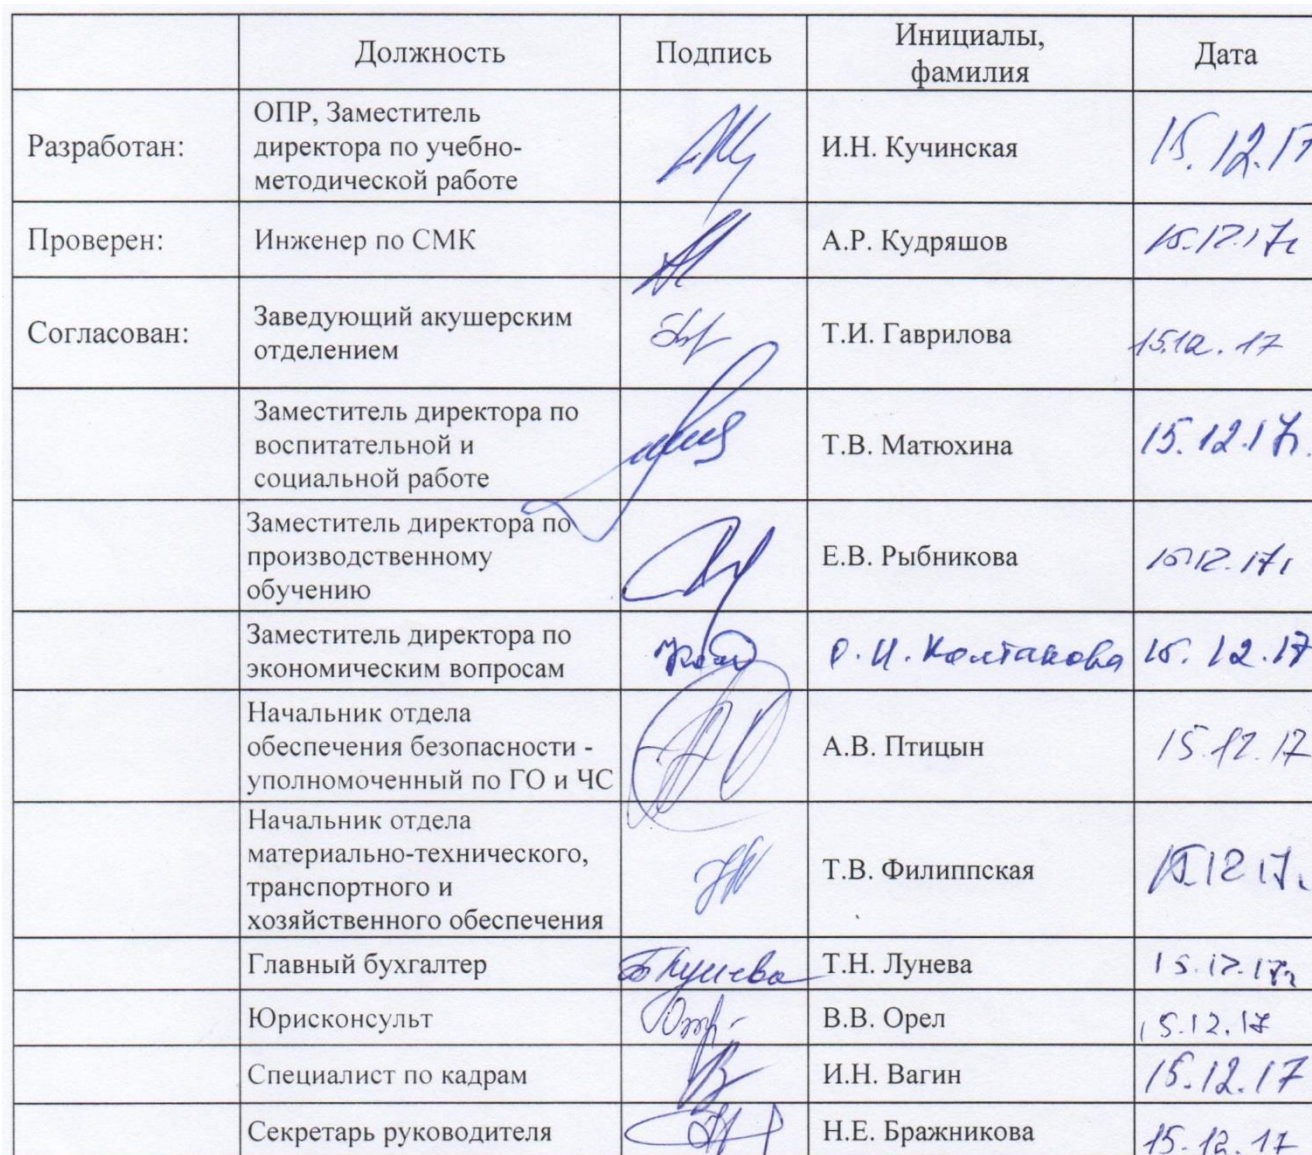 Должность Подпись Инициалы, Дата
фамилия
Разработан: ОПР, Заместитель
директора по учебно-
методической работе И.Н. Кучинская 15.12.17
Проверен: Инженер по СМК А.Р. Кудряшов 15.12.17г
Согласован: Заведующий акушерским
отделением Т.И. Гаврилова 15.12.17
Заместитель директора по
воспитательной и
социальной работе Т.В. Матюхина 15.12.17г.
Заместитель директора по
производственному
обучению Е.В. Рыбникова 15.12.17г
Заместитель директора по
экономическим вопросам О.И. 15.12.17
Начальник отдела
обеспечения безопасности -
уполномоченный по ГО и ЧС А.В. Птицын 15.12.17
Начальник отдела
материально-технического,
транспортного и
хозяйственного обеспечения Т.В. Филиппская 15.12.17г.
Главный бухгалтер Т.Н. Лунева 15.12.17г
Юрисконсульт В.В. Орел 15.12.17
Специалист по кадрам И.Н. Вагин 15.12.17
Секретарь руководителя Н.Е. Бражникова 15.12.17